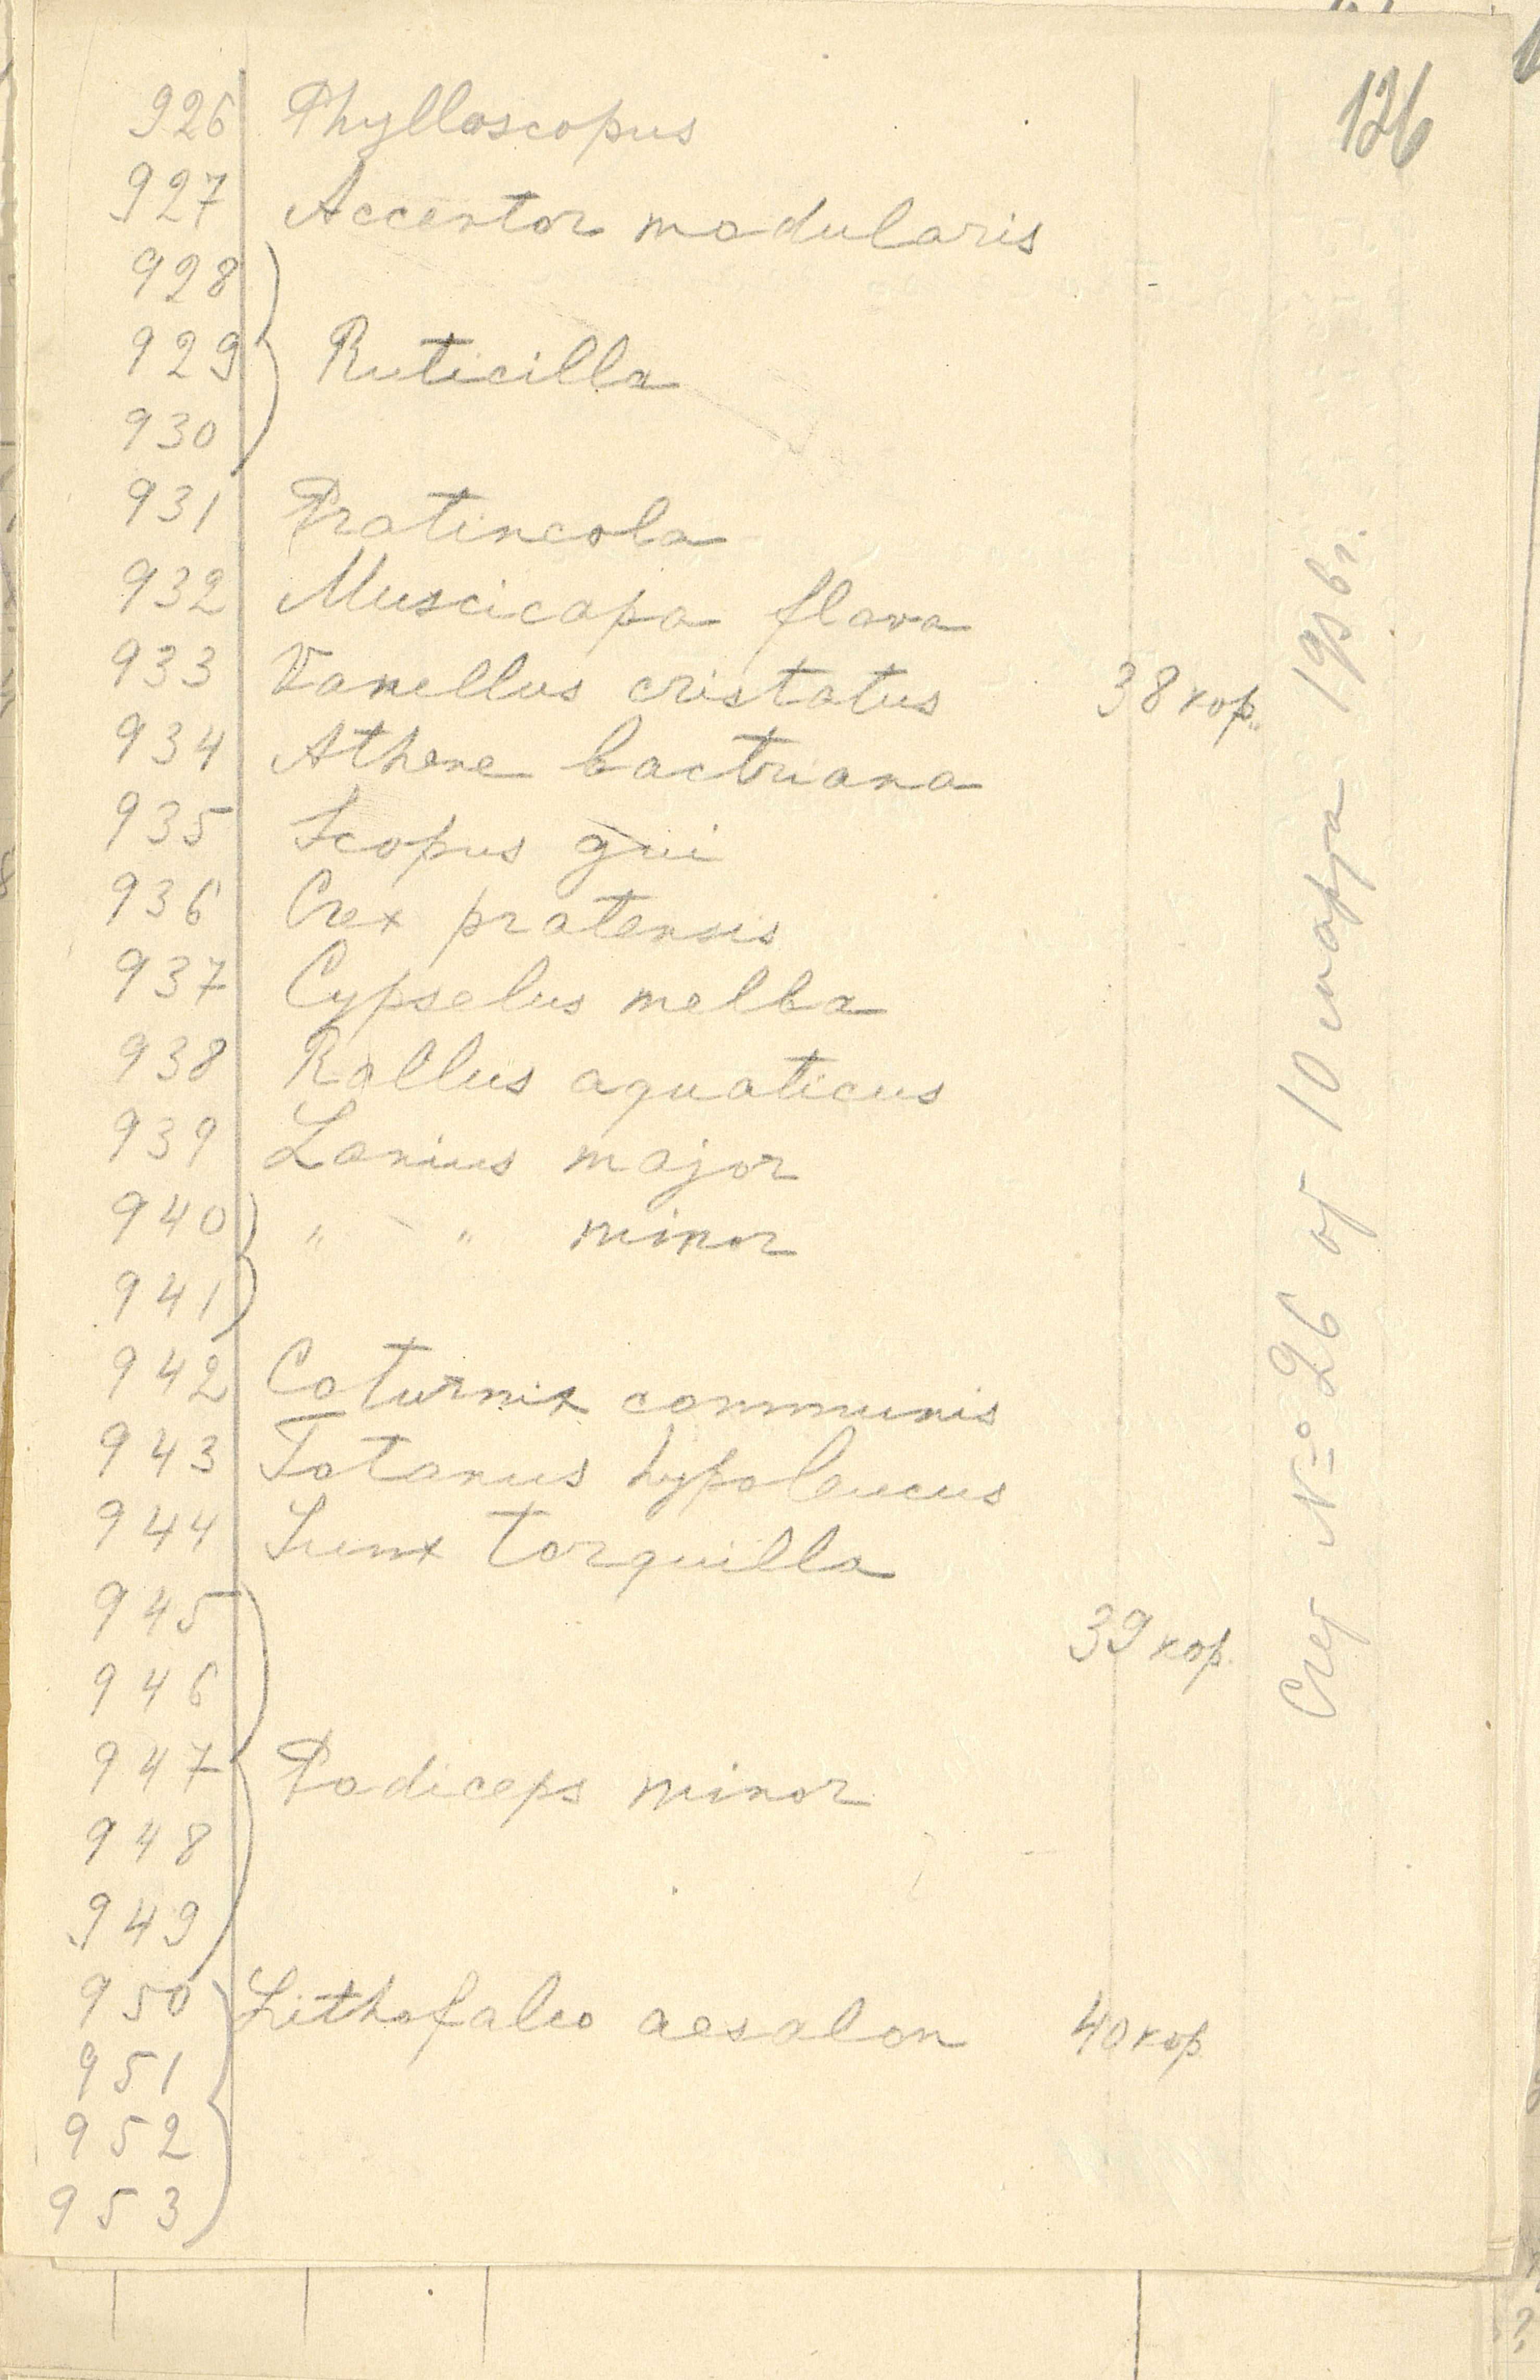 126
926 Phylloscopus
927 Accentor modularis
928
929 Ruticilla
930
931 Pratincola
932 Muscicapa flava
933 Vanellus cristatus 38 кор.
934 Athene bactriana
935 Scopus gui
936 Crex pratensis
937 Cypselus melba
938 Rallus aquaticus
939 Lanius major
940 " - " minor
941
942 Coturnix communis
943 Totanus hypoleucus
944 Iunx torquilla
945 39 кор.
946
947 Podiceps minor
948
949
950 Lithofalco aesalon 40 кор
951
952
953
Счет № 26 от 10 марта